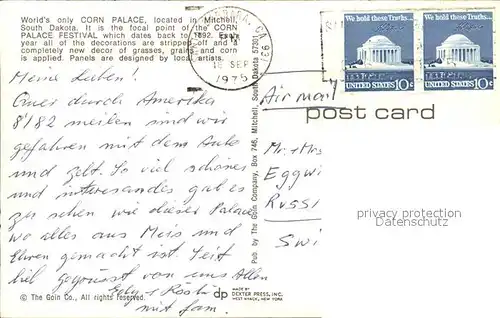 World's only CORN PALACE, located in Mitchell,
South Dakota. It is the focal point of the CORN
PALACE FESTIVAL which dates back to 1892. Each
year all of the decorations are stripped off and a
completely new decor of grasses, grains and corn
is applied. Panels are designed by local artists.
Meine Lieben!
Quer durch Amerika
8'182 meilen sind wir
gefahren mit dem Auto
und Zelt. So viel schönes
und interesandes gab es
zu sehen wie dieser Palace
wo alles aus Mais und
Ähren gemacht ist. Seit
viel gegrüsst von uns Allen
Rösti
mit fam.
© The Goin Co., All rights reserved.
Pub by The Goin Company, Box 746, Mitchell, South Dakota 57301
dp
MADE BY
DEXTER PRESS, INC.
WEST NYACK, NEW YORK
CA
16 SEP
1975
We hold these Truths...
UNITED STATES 10c
We hold these Truths...
UNITED STATES 10c
Air mail
post card
Mr. + Mrs
Eggwi
Russi
Swi
privacy protection
Datenschutz